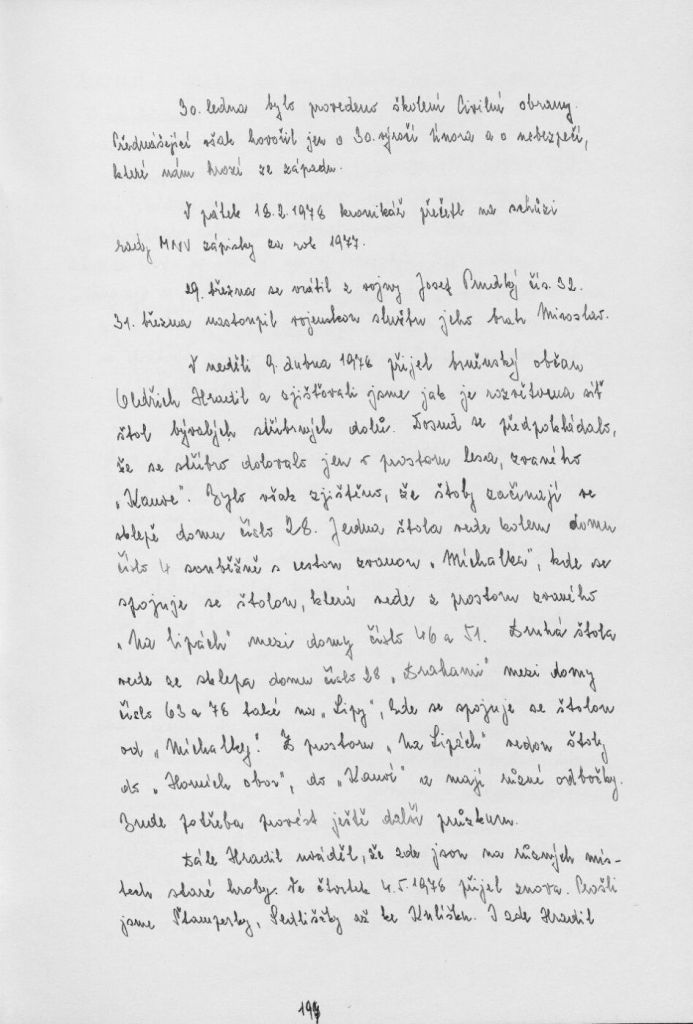 30. ledna bylo provedeno školení Civilní obrany.
Přednášející však hovořil jen o 30. výročí Února a o nebezpečí,
které nám hrozí ze západu.
V pátek 18.2.1978 kronikář přečetl na schůzi
rady MNV zápisky za rok 1977.
29. března se vrátil z vojny Josef Prudký čís. 32.
31. března nastoupil vojenskou službu jeho bratr Miroslav.
V neděli 9. dubna 1978 přijel brněnský občan
Oldřich Hradil a zjišťovali jsme jak je rozvětvena síť
štol bývalých stříbrných dolů. Dosud se předpokládalo,
že se stříbro dolovalo jen v prostoru lesa, zvaného
„Kauve". Bylo však zjištěno, že štoly začínají ve
sklepě domu číslo 28. Jedna štola vede kolem domu
číslo 4 souběžně s cestou zvanou „Michalka", kde se
spojuje se štolou, která vede z prostoru zvaného
„Na lipách" mezi domy číslo 46 a 51. Druhá štola
vede ze sklepa domu číslo 28 „Drahami" mezi domy
číslo 63 a 78 také na „Lipy", kde se spojuje se štolou
od „Michalky". Z prostoru „Na Lipách" vedou štoly
do „Horních obor", do „Kauví" a mají různé odbočky.
Bude potřeba provést ještě další průzkum.
Dále Hradil uváděl, že zde jsou na různých mís-
tech staré hroby. Ve čtvrtek 4.5.1978 přijel znova. Prošli
jsme Štamperky, Sedlišťky až ke Kulíšku. I zde Hradil